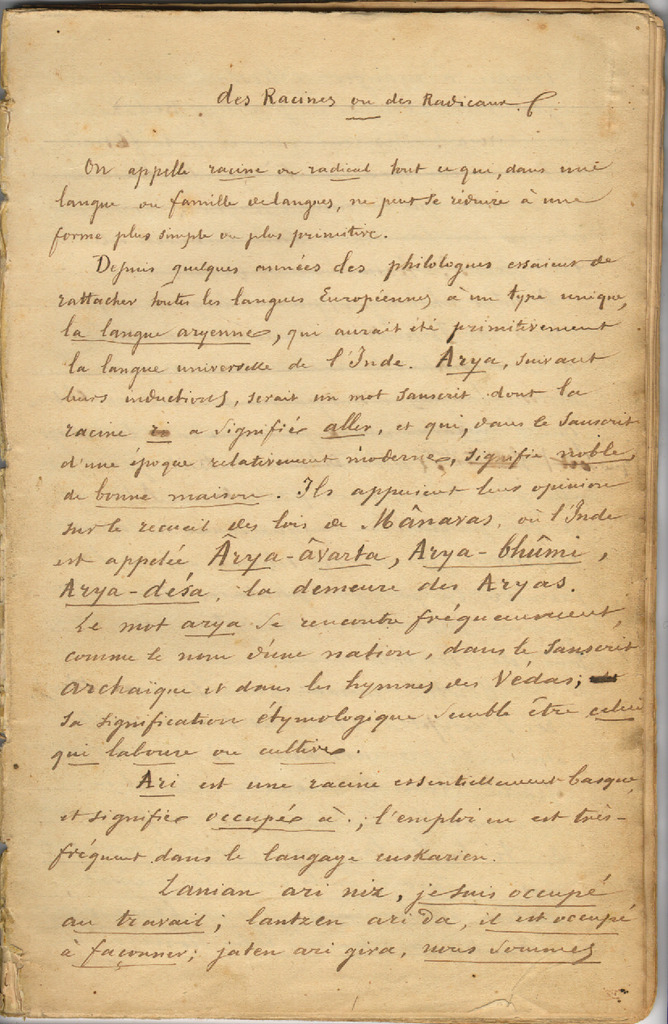 des Racines ou des Radicaux
On appelle racine ou radical tout ce que, dans une
langue ou famille de langues, ne peut se réduire à une
forme plus simple ou plus primitive.
Depuis quelques années des philologues essaient de
rattacher toutes les langues Européennes à un type unique,
la langue aryenne, qui aurait été primitivement
la langue universelle de l'Inde. Arya, suivant
leurs inductions, serait un mot sanscrit dont la
racine ri a signifié aller, et qui, dans le sanscrit
d'une époque relativement moderne, signifie noble,
de bonne maison. Ils appuient leur opinion
sur le recueil des lois de Mânavas, où l'Inde
est appelée Ârya-âvarta, Arya-bhûmi,
Arya-désa, la demeure des Aryas.
Le mot arya se rencontre fréquemment,
comme le nom d'une nation, dans le sanscrit
archaïque et dans les hymnes des Védas;
sa signification étymologique semble être celui
qui laboure ou cultive.
Ari est une racine essentiellement basque,
et signifie occupé à; l'emploi en est très-
fréquent dans le langage euskarien.
Lanian ari niz, je suis occupé
au travail; lantzen ari da, il est occupé
à façonner; jaten ari gira, nous sommes